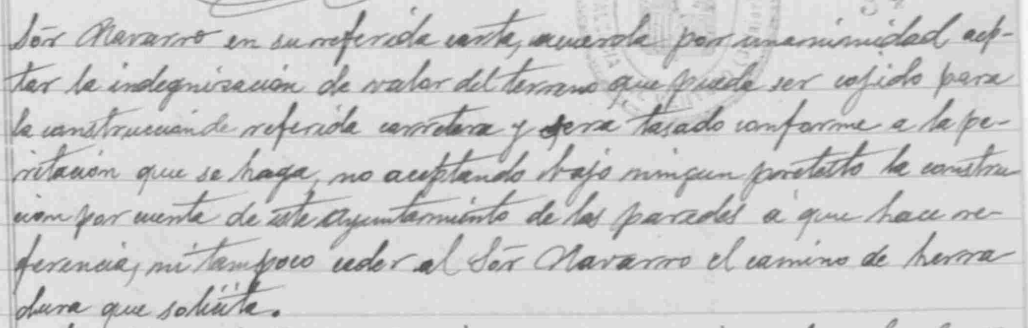 Sör Navarro en su referida carta, acuerda por unanimidad acep-
tar la indegnización de valor del terreno que pueda ser cojido para
la construcción de referida carretera y sera tasado conforme a la pe-
ritación que se haga, no aceptando bajo ningun pretesto la constru
cion por cuenta de este Ayuntamiento de las paredes a que hace re-
ferencia, ni tampoco ceder al Sör Navarro el camino de herra
dura que solicita.